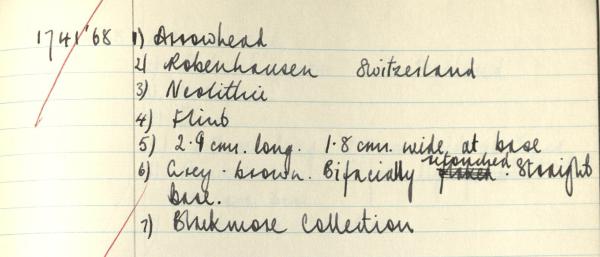 1741'68 1) Arrowhead
2) Robenhausen Switzerland
3) Neolithic
4) Flint
5) 2.9 cm. long. 1.8 cm. wide at base
6) Grey-brown. Bifacially retouched. Straight
base.
7) Blackmore Collection